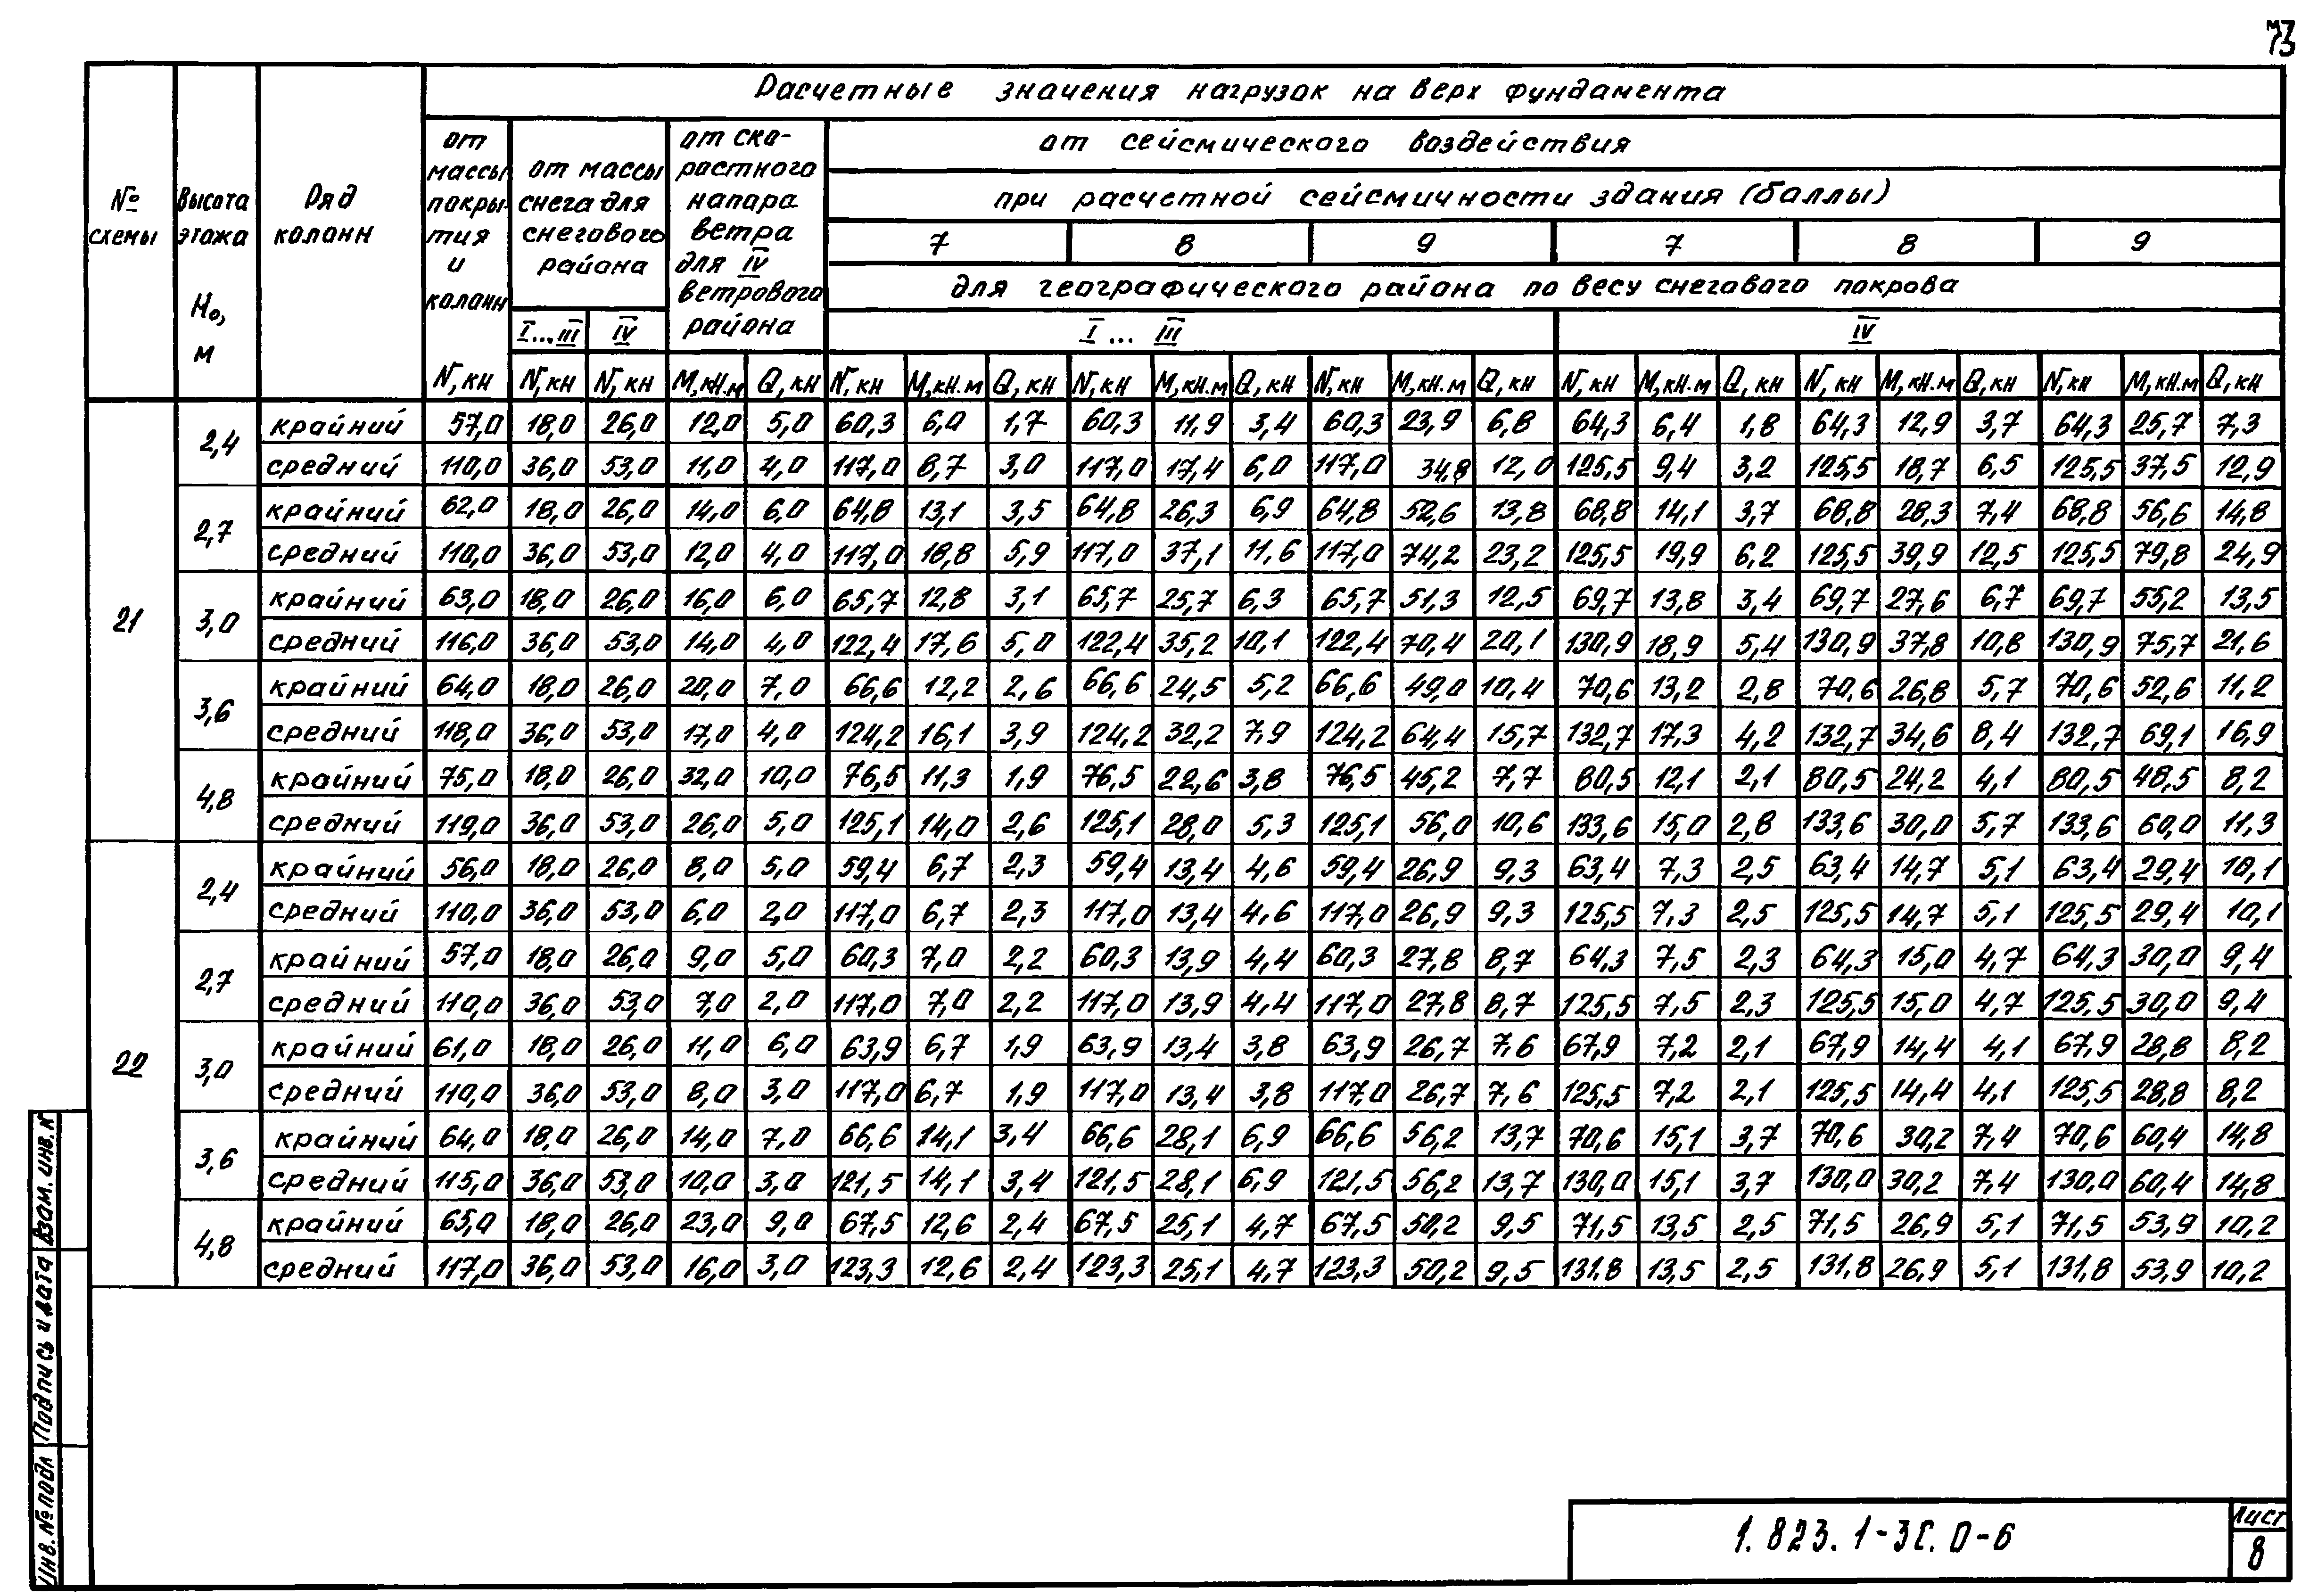 73
Расчетные значения нагрузок на верх фундамента
№ схемы
Высота этажа Но, м
Ряд колонн
от массы покрытия и колонн
от массы снега для снегового района
от скоростного напора ветра для IV ветрового района
от сейсмического воздействия
при расчетной сейсмичности здания (баллы)
7 8 9 7 8 9
для географического района по весу снегового покрова
I...III IV I ... III IV
N, кН N, кН N, кН М, кН.м Q, кН N, кН М, кН.м Q, кН N, кН М, кН.м Q, кН N, кН М, кН.м Q, кН N, кН М, кН.м Q, кН N, кН М, кН.м Q, кН N, кН М, кН.м Q, кН
21
2,4 крайний 57,0 18,0 26,0 12,0 5,0 60,3 6,0 1,7 60,3 11,9 3,4 60,3 23,9 6,8 64,3 6,4 1,8 64,3 12,9 3,7 64,3 25,7 7,3
средний 110,0 36,0 53,0 11,0 4,0 117,0 8,7 3,0 117,0 17,4 6,0 117,0 34,8 12,0 125,5 9,4 3,2 125,5 18,7 6,5 125,5 37,5 12,9
2,7 крайний 62,0 18,0 26,0 14,0 6,0 64,8 13,1 3,5 64,8 26,3 6,9 64,8 52,6 13,8 68,8 14,1 3,7 68,8 28,3 7,4 68,8 56,6 14,8
средний 110,0 36,0 53,0 12,0 4,0 117,0 18,8 5,9 117,0 37,1 11,6 117,0 74,2 23,2 125,5 19,9 6,2 125,5 39,9 12,5 125,5 79,8 24,9
3,0 крайний 63,0 18,0 26,0 16,0 6,0 65,7 12,8 3,1 65,7 25,7 6,3 65,7 51,3 12,5 69,7 13,8 3,4 69,7 27,6 6,7 69,7 55,2 13,5
средний 116,0 36,0 53,0 14,0 4,0 122,4 17,6 5,0 122,4 35,2 10,1 122,4 70,4 20,1 130,9 18,9 5,4 130,9 37,8 10,8 130,9 75,7 21,6
3,6 крайний 64,0 18,0 26,0 20,0 7,0 66,6 12,2 2,6 66,6 24,5 5,2 66,6 49,0 10,4 70,6 13,2 2,8 70,6 26,8 5,7 70,6 52,6 11,2
средний 118,0 36,0 53,0 17,0 4,0 124,2 16,1 3,9 124,2 32,2 7,9 124,2 64,4 15,7 132,7 17,3 4,2 132,7 34,6 8,4 132,7 69,1 16,9
4,8 крайний 75,0 18,0 26,0 32,0 10,0 76,5 11,3 1,9 76,5 22,6 3,8 76,5 45,2 7,7 80,5 12,1 2,1 80,5 24,2 4,1 80,5 48,5 8,2
средний 119,0 36,0 53,0 26,0 5,0 125,1 14,0 2,6 125,1 28,0 5,3 125,1 56,0 10,6 133,6 15,0 2,8 133,6 30,0 5,7 133,6 60,0 11,3
22
2,4 крайний 56,0 18,0 26,0 8,0 5,0 59,4 6,7 2,3 59,4 13,4 4,6 59,4 26,9 9,3 63,4 7,3 2,5 63,4 14,7 5,1 63,4 29,4 10,1
средний 110,0 36,0 53,0 6,0 2,0 117,0 6,7 2,3 117,0 13,4 4,6 117,0 26,9 9,3 125,5 7,3 2,5 125,5 14,7 5,1 125,5 29,4 10,1
2,7 крайний 57,0 18,0 26,0 9,0 5,0 60,3 7,0 2,2 60,3 13,9 4,4 60,3 27,8 8,7 64,3 7,5 2,3 64,3 15,0 4,7 64,3 30,0 9,4
средний 110,0 36,0 53,0 7,0 2,0 117,0 7,0 2,2 117,0 13,9 4,4 117,0 27,8 8,7 125,5 7,5 2,3 125,5 15,0 4,7 125,5 30,0 9,4
3,0 крайний 61,0 18,0 26,0 11,0 6,0 63,9 6,7 1,9 63,9 13,4 3,8 63,9 26,7 7,6 67,9 7,2 2,1 67,9 14,4 4,1 67,9 28,8 8,2
средний 110,0 36,0 53,0 8,0 3,0 117,0 6,7 1,9 117,0 13,4 3,8 117,0 26,7 7,6 125,5 7,2 2,1 125,5 14,4 4,1 125,5 28,8 8,2
3,6 крайний 64,0 18,0 26,0 14,0 7,0 66,6 14,1 3,4 66,6 28,1 6,9 66,6 56,2 13,7 70,6 15,1 3,7 70,6 30,2 7,4 70,6 60,4 14,8
средний 115,0 36,0 53,0 10,0 3,0 121,5 14,1 3,4 121,5 28,1 6,9 121,5 56,2 13,7 130,0 15,1 3,7 130,0 30,2 7,4 130,0 60,4 14,8
4,8 крайний 65,0 18,0 26,0 23,0 9,0 67,5 12,6 2,4 67,5 25,1 4,7 67,5 50,2 9,5 71,5 13,5 2,5 71,5 26,9 5,1 71,5 53,9 10,2
средний 117,0 36,0 53,0 16,0 3,0 123,3 12,6 2,4 123,3 25,1 4,7 123,3 50,2 9,5 131,8 13,5 2,5 131,8 26,9 5,1 131,8 53,9 10,2
Инв. № подл Подпись и дата Взам. инв. №
1.823.1-3С.0-6
Лист
8